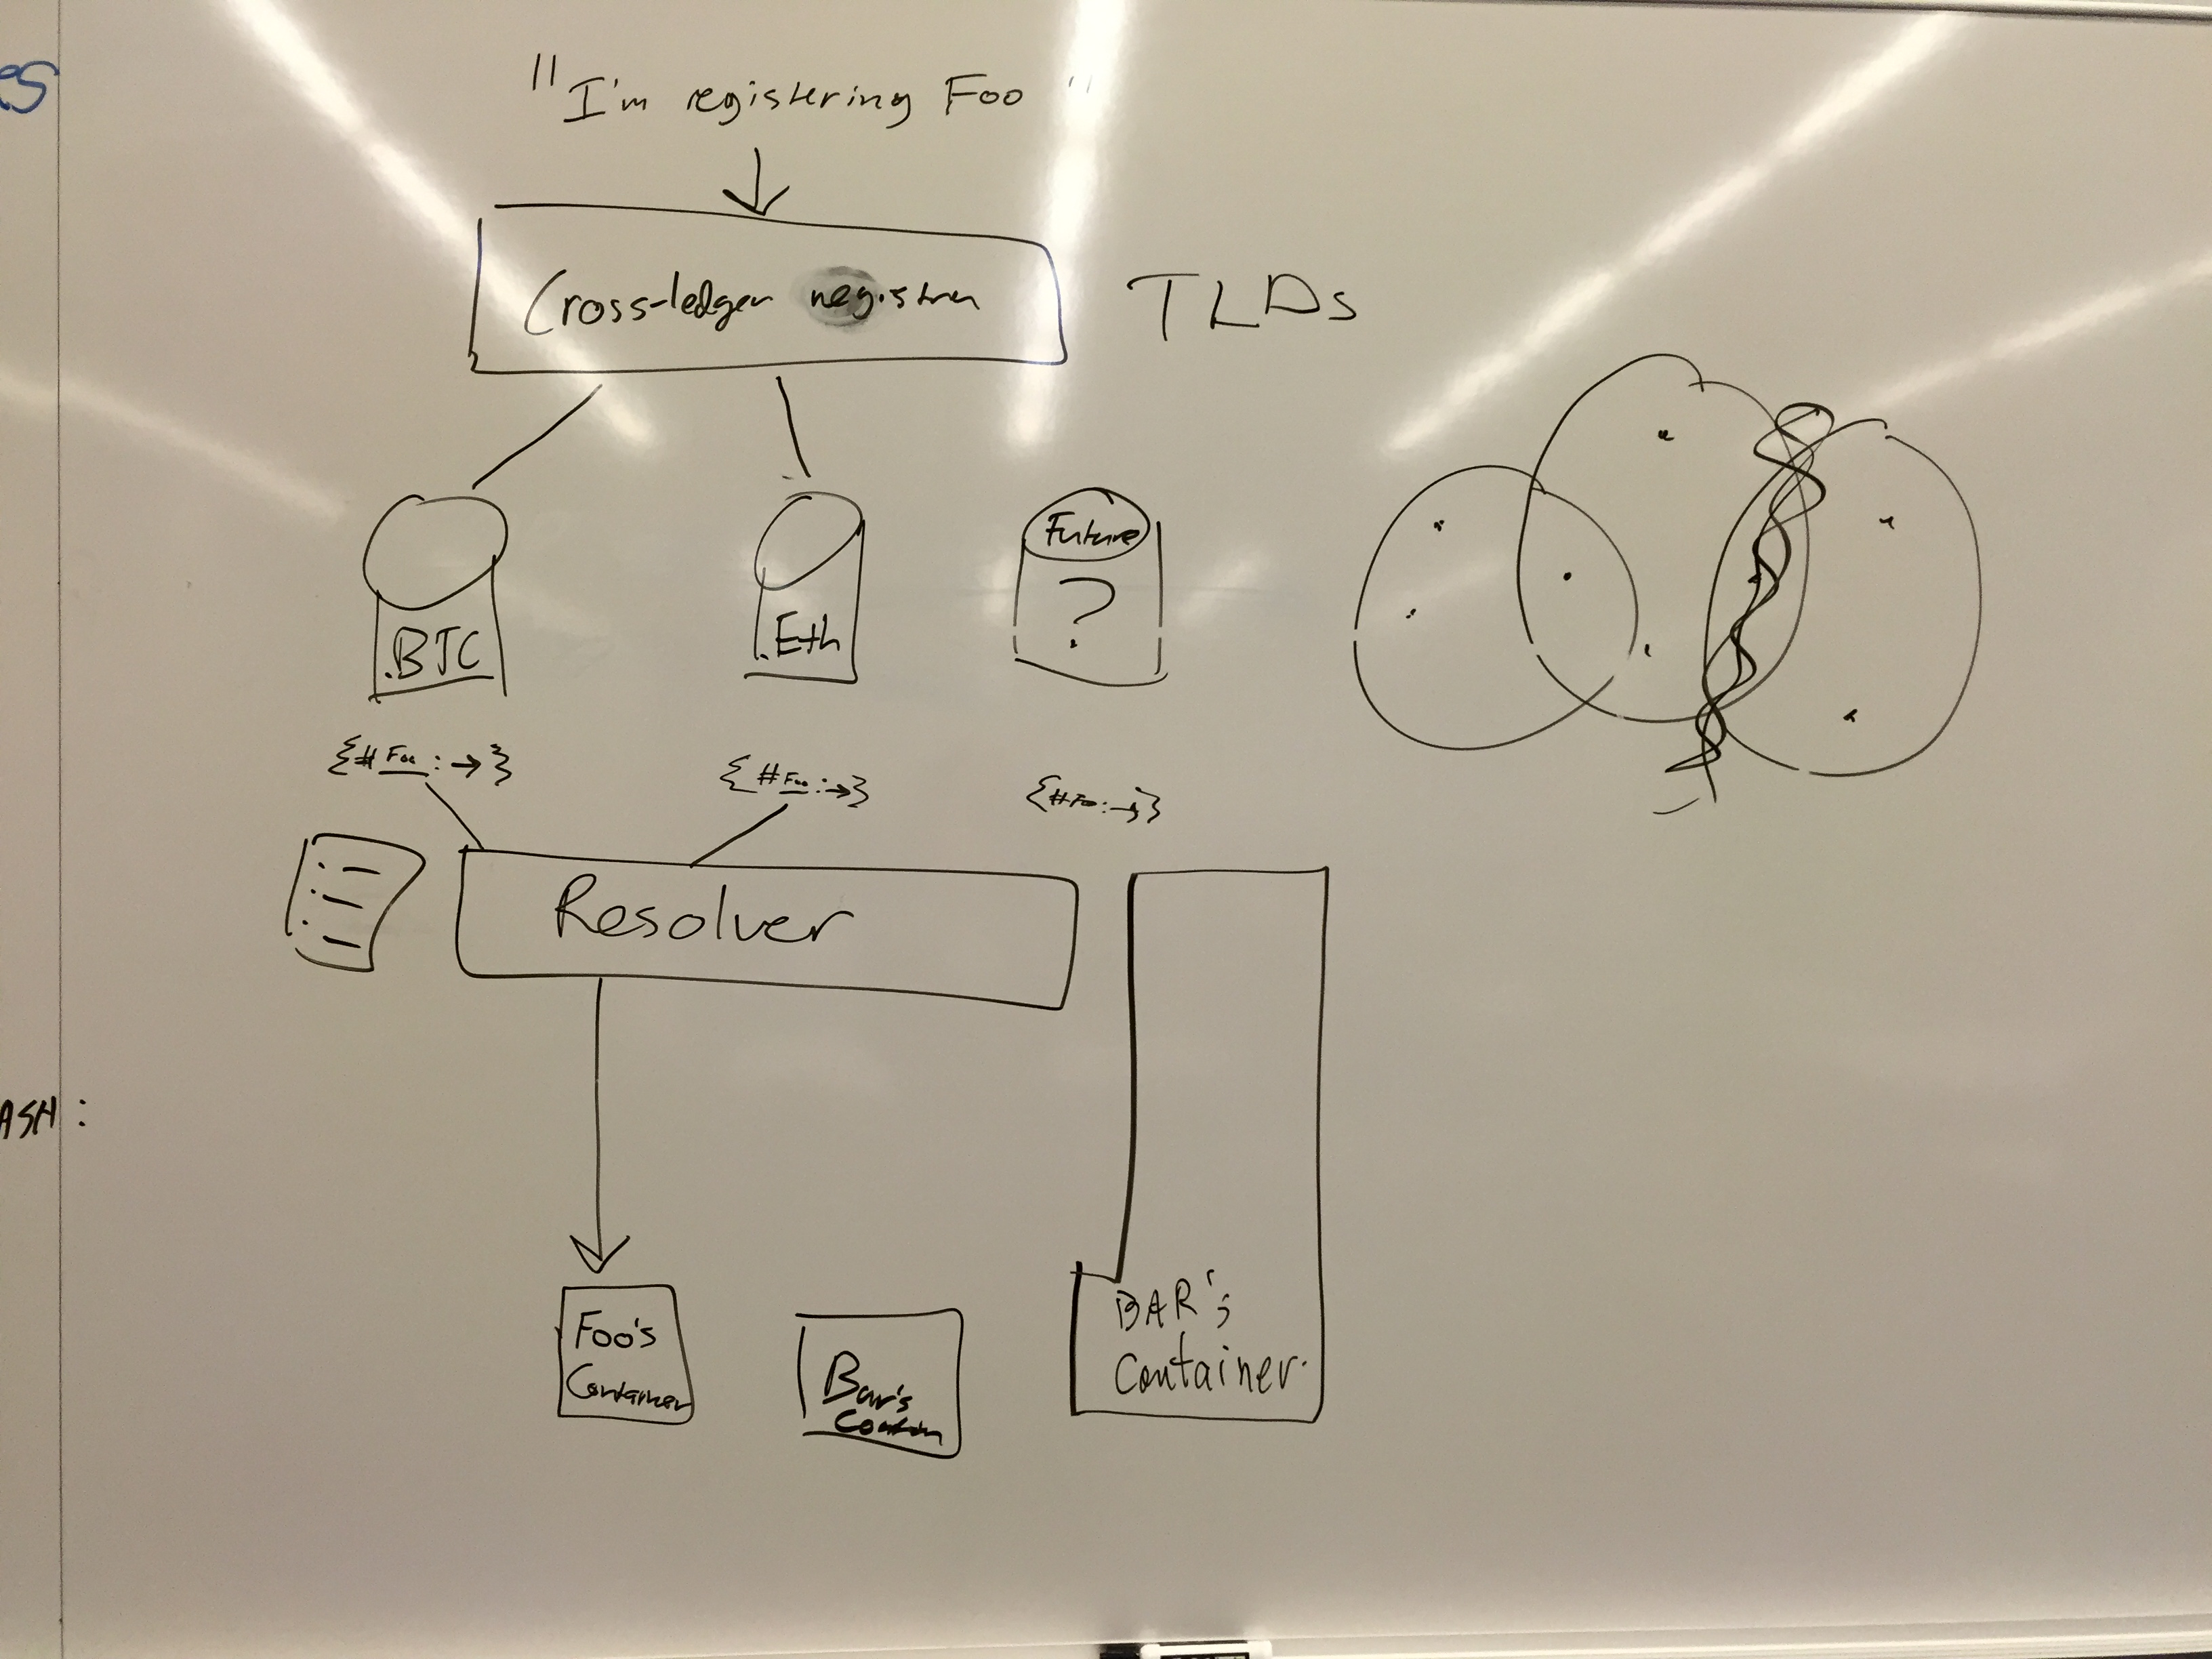 es
"I'm registering Foo"
Cross-ledger registrar
TLDs
Future
?
.BTC
.Eth
{#Foo:→}
{#Foo:→}
{#Foo:→}
Resolver
ASH:
Foo's
Container
Bar's
BAR's
Container.